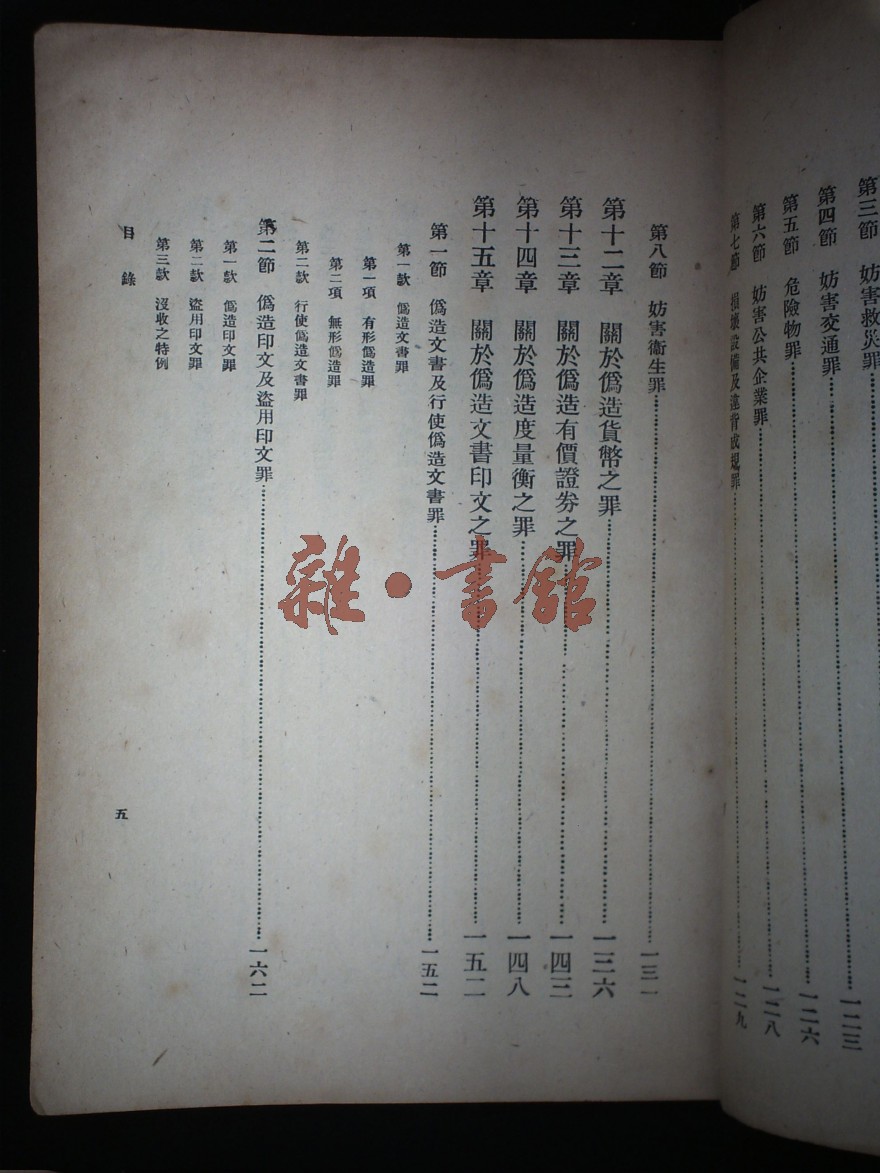 第三節　妨害救災罪……一二三
第四節　妨害交通罪……一二六
第五節　危險物罪……一二八
第六節　妨害公共企業罪……一二九
第七節　損壞設備及違背成規罪
第八節　妨害衞生罪……一三一
第十二章　關於僞造貨幣之罪……一三六
第十三章　關於僞造有價證券之罪……一四三
第十四章　關於僞造度量衡之罪……一四八
第十五章　關於僞造文書印文之罪……一五二
第一節　僞造文書及行使僞造文書罪……一五二
第一款　僞造文書罪
第一項　有形僞造罪
第二項　無形僞造罪
第二款　行使僞造文書罪
第二節　僞造印文及盜用印文罪……一六二
第一款　僞造印文罪
第二款　盜用印文罪
第三款　沒收之特例
目錄
五
雜·書館